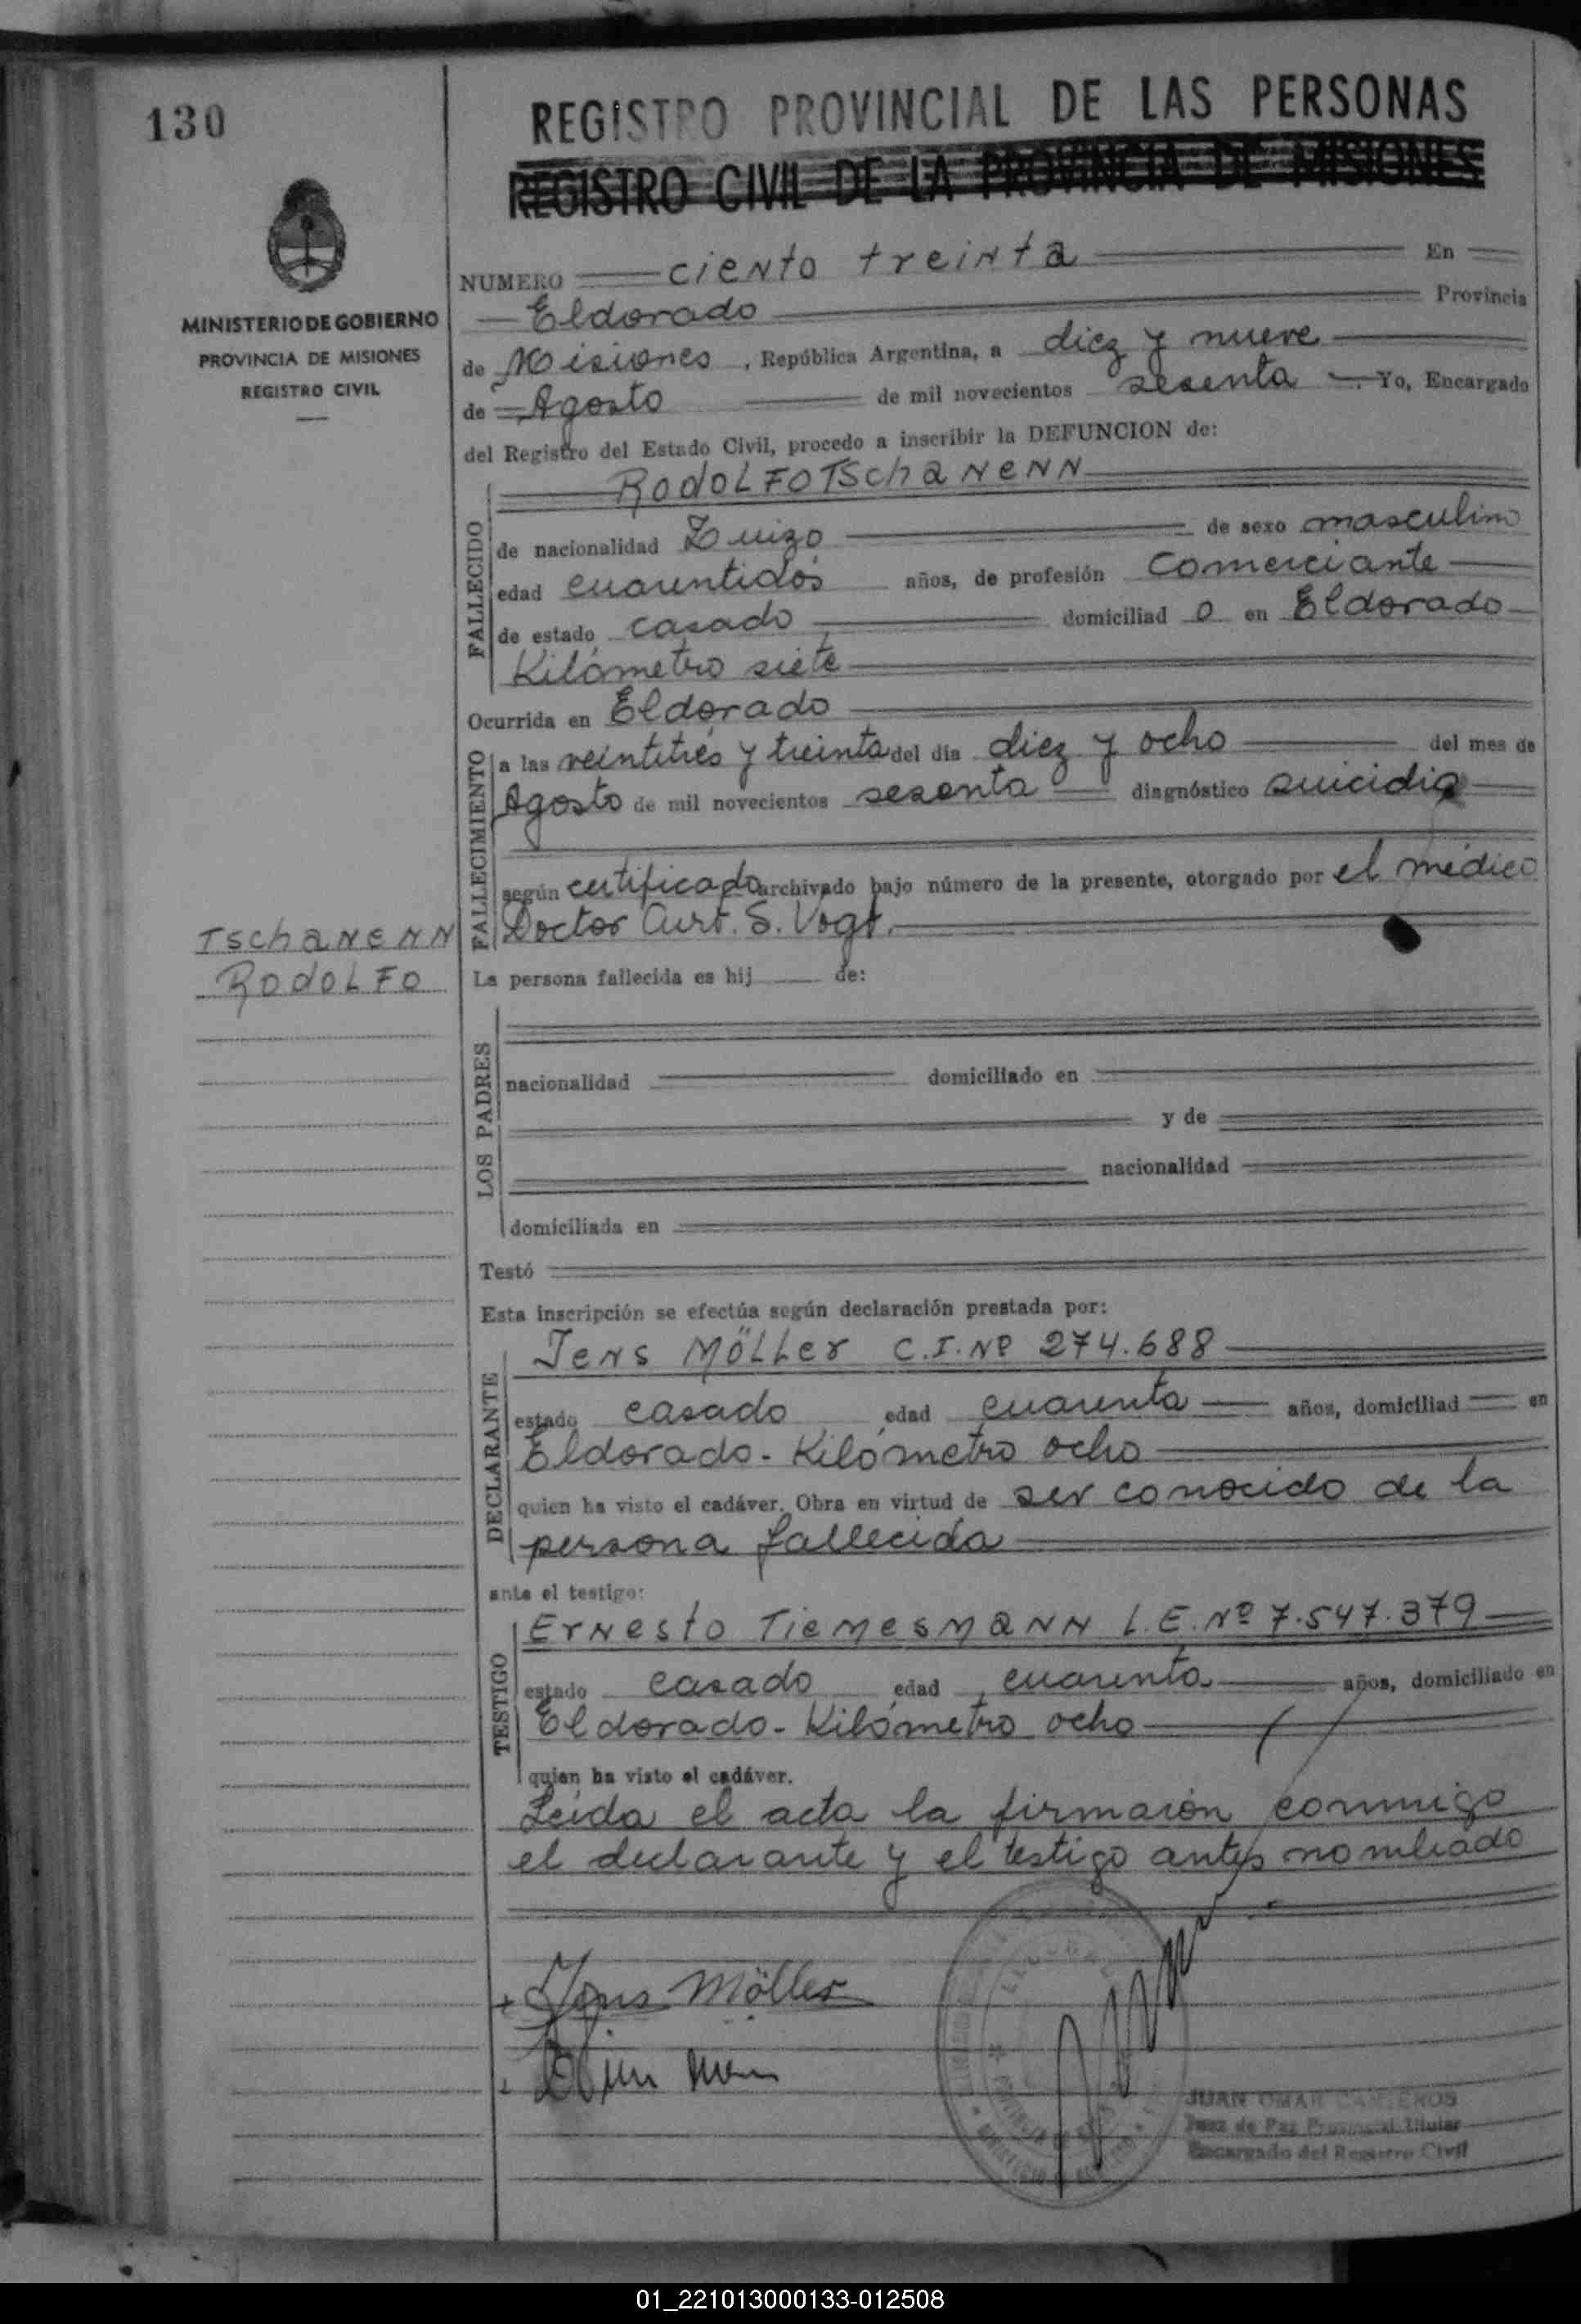 130
REGISTRO PROVINCIAL DE LAS PERSONAS
REGISTRO CIVIL DE LA PROVINCIA DE MISIONES
MINISTERIO DE GOBIERNO
PROVINCIA DE MISIONES
REGISTRO CIVIL
NUMERO ciento treinta En
Eldorado Provincia
de Misiones, República Argentina, a diez y nueve
de Agosto de mil novecientos sesenta Yo, Encargado
del Registro del Estado Civil, procedo a inscribir la DEFUNCION de:
RODOLFO TSCHANENN
FALLECIDO
de nacionalidad Zuizo de sexo masculino
edad cuarentidós años, de profesión Comerciante
de estado casado domiciliad o en Eldorado
Kilómetro siete
Ocurrida en Eldorado
FALLECIMIENTO
a las veintitrés y treinta del día diez y ocho del mes de
Agosto de mil novecientos sesenta diagnóstico suicidio
según certificado archivado bajo número de la presente, otorgado por el médico
Doctor Curt. S. Vogt.
TSCHANENN
RODOLFO
La persona fallecida es hij de:
LOS PADRES
nacionalidad domiciliado en
y de
nacionalidad
domiciliada en
Testó
Esta inscripción se efectúa según declaración prestada por:
DECLARANTE
Jens Möller C.I. Nº 274.688
estado casado edad cuarenta años, domiciliad en
Eldorado - Kilómetro ocho
quien ha visto el cadáver. Obra en virtud de ser conocido de la
persona fallecida
ante el testigo:
TESTIGO
Ernesto Tiemesmann L.E. Nº 7.547.379
estado casado edad cuarenta años, domiciliado en
Eldorado - Kilómetro ocho
quien ha visto el cadáver.
Leída el acta la firmaron conmigo
el declarante y el testigo antes nombrado
Jens Möller
JUAN OMAR
Juez de Paz Provincial Titular
Encargado del Registro Civil
01_221013000133-012508